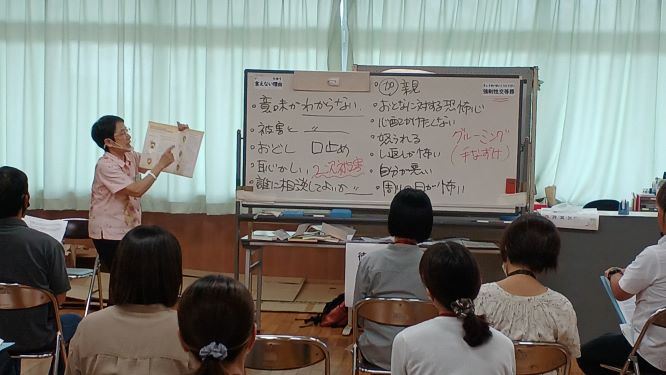 言えない理由
・意味がわからない
・被害と 〃
・おどし 口止め
・恥かしい 二次被害
・誰に相談してよいか 〃
強制性交等罪
・加 親
・おとなに対する恐怖心
・心配かけたくない
・怒られる
・し返しが怖い
・自分が悪い
・周りの目が怖い
グルーミング
(手なずけ)